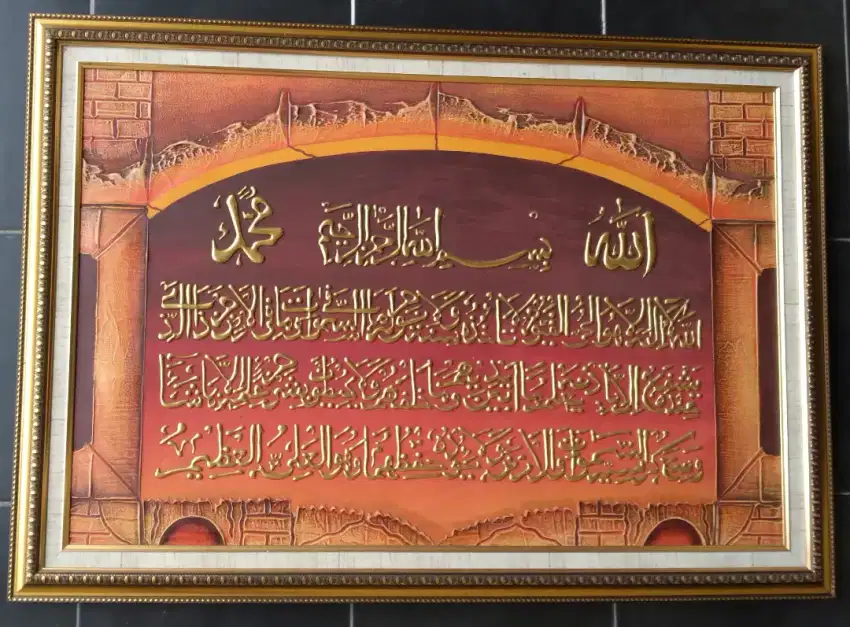 الله بسم الله الرحمن الرحيم محمد
الله لا اله الا هو الحي القيوم لا تأخذه سنة ولا نوم له ما في السموات وما في الارض من ذا الذي
يشفع عنده الا باذنه يعلم ما بين ايديهم وما خلفهم ولا يحيطون بشيء من علمه الا بما شاء
وسع كرسيه السموات والارض ولا يؤده حفظهما وهو العلي العظيم